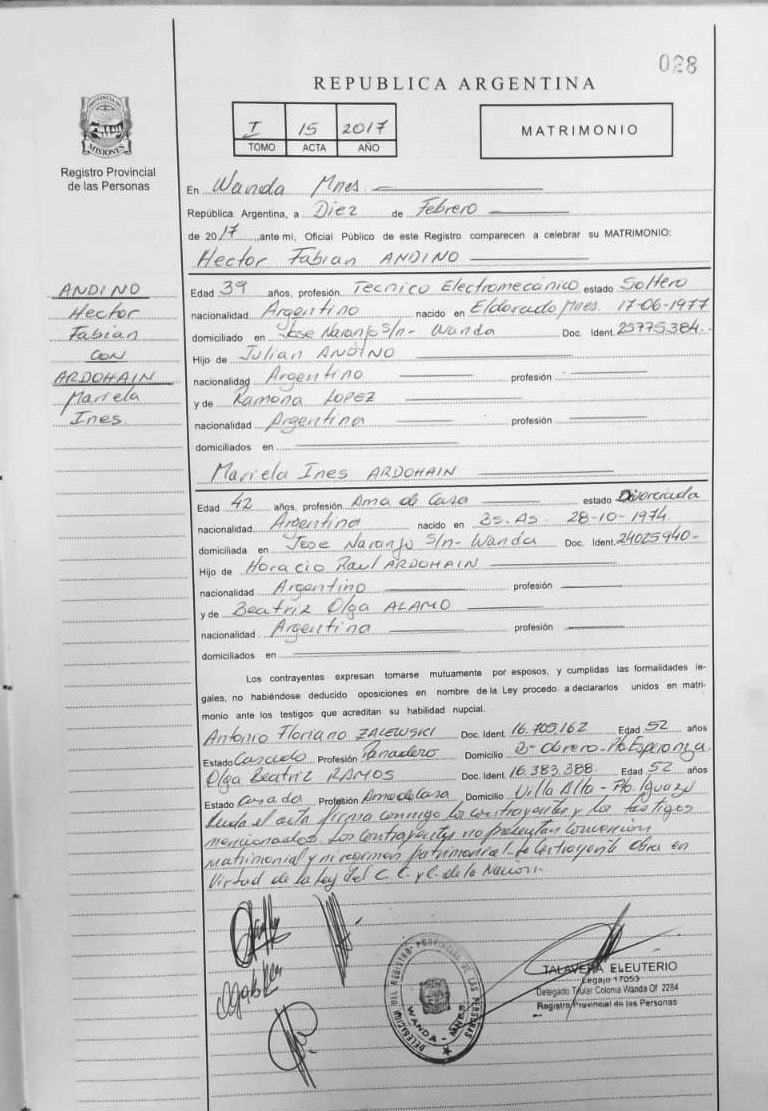 028
REPUBLICA ARGENTINA
I 15 2017
TOMO ACTA AÑO
MATRIMONIO
PROVINCIA DE MISIONES
Registro Provincial
de las Personas
En Wanda Mnes.
República Argentina, a Diez de Febrero
de 2017, ante mi, Oficial Público de este Registro comparecen a celebrar su MATRIMONIO:
Hector Fabian ANDINO
ANDINO
Hector
Fabian
CON
ARDOHAIN
Mariela
Ines
Edad 39 años, profesión Tecnico Electromecánico estado Soltero
nacionalidad Argentino nacido en Eldorado Mnes. 17-06-1977
domiciliado en Jose Naranjo S/n- Wanda Doc. Ident. 25775.384.-
Hijo de Julian ANDINO
nacionalidad Argentino profesión
y de Ramona LOPEZ
nacionalidad Argentina profesión
domiciliados en
Mariela Ines ARDOHAIN
Edad 42 años, profesión Ama de Casa estado Divorciada
nacionalidad Argentina nacido en Bs. As. 28-10-1974
domiciliada en Jose Naranjo S/n- Wanda Doc. Ident. 24025940-
Hijo de Horacio Raul ARDOHAIN
nacionalidad Argentino profesión
y de Beatriz Olga ALAMO
nacionalidad Argentina profesión
domiciliados en
Los contrayentes expresan tomarse mutuamente por esposos, y cumplidas las formalidades le-
gales, no habiéndose deducido oposiciones en nombre de la Ley procedo a declararlos unidos en matri-
monio ante los testigos que acreditan su habilidad nupcial.
Antonio Floriano ZALEWSKI Doc. Ident. 16.705.162 Edad 52 años
Estado Casado Profesión Panadero Domicilio Bº Obrero- Pto Esperanza.
Olga Beatriz RAMOS Doc. Ident 16.383.388. Edad 52 años
Estado Casada Profesión Ama de Casa Domicilio Villa Alta - Pto. Iguazu
Leida el acta firma conmigo los contrayentes y los testigos
mencionados. Los contrayentes no presentan Convencion
Matrimonial y ni regimen patrimonial. La Contrayente Obra en
Virtud de la Ley del C. C. y C. de la Nacion.-
DELEGACION DEL REGISTRO PROVINCIAL DE LAS PERSONAS
WANDA - MNES.
TALAVERA ELEUTERIO
Legajo 17053
Delegado Titular Colonia Wanda Of. 2284
Registro Provincial de las Personas